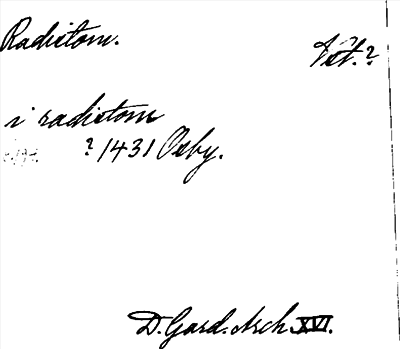 Radistom.
Vet.?
i radistom
? 1431 Osby.
D. Gard. Arch. XVI.